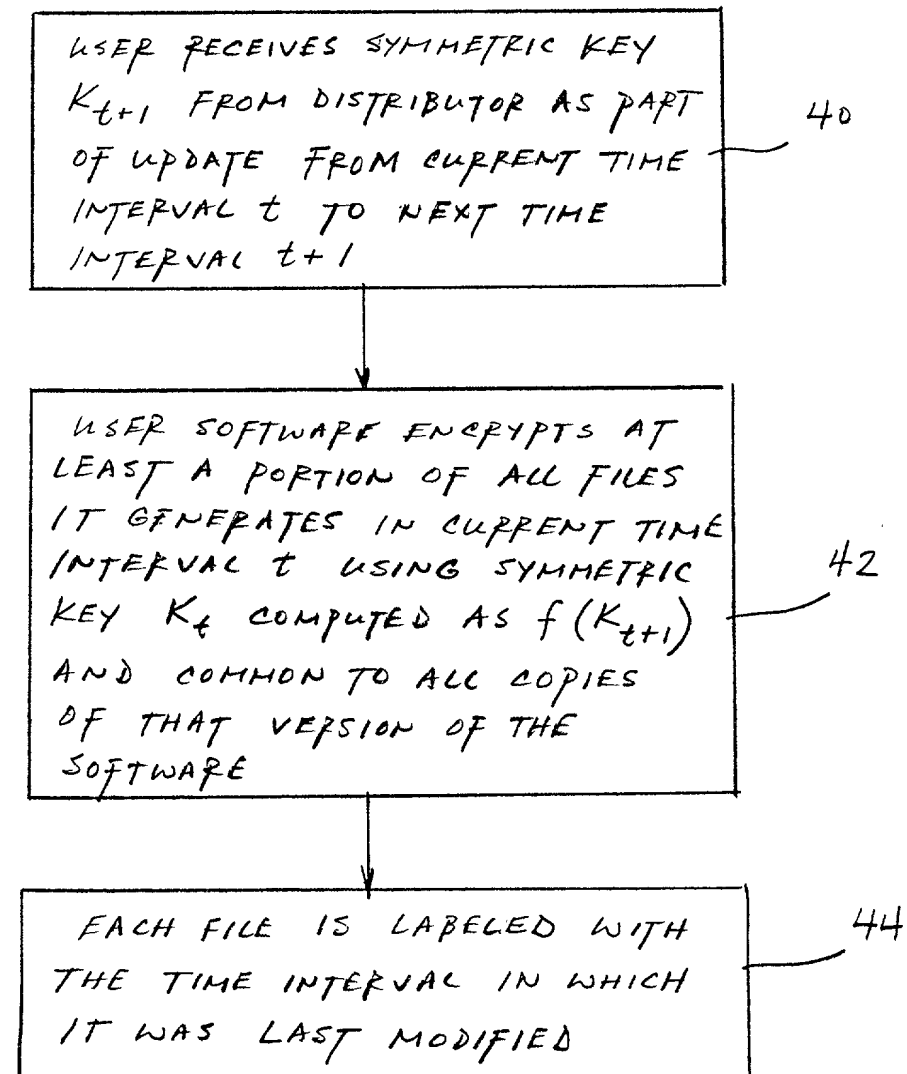 USER RECEIVES SYMMETRIC KEY
K_{t+1} FROM DISTRIBUTOR AS PART
OF UPDATE FROM CURRENT TIME
INTERVAL t TO NEXT TIME
INTERVAL t+1
40
USER SOFTWARE ENCRYPTS AT
LEAST A PORTION OF ALL FILES
IT GENERATES IN CURRENT TIME
INTERVAL t USING SYMMETRIC
KEY K_t COMPUTED AS f(K_{t+1})
AND COMMON TO ALL COPIES
OF THAT VERSION OF THE
SOFTWARE
42
EACH FILE IS LABELED WITH
THE TIME INTERVAL IN WHICH
IT WAS LAST MODIFIED
44